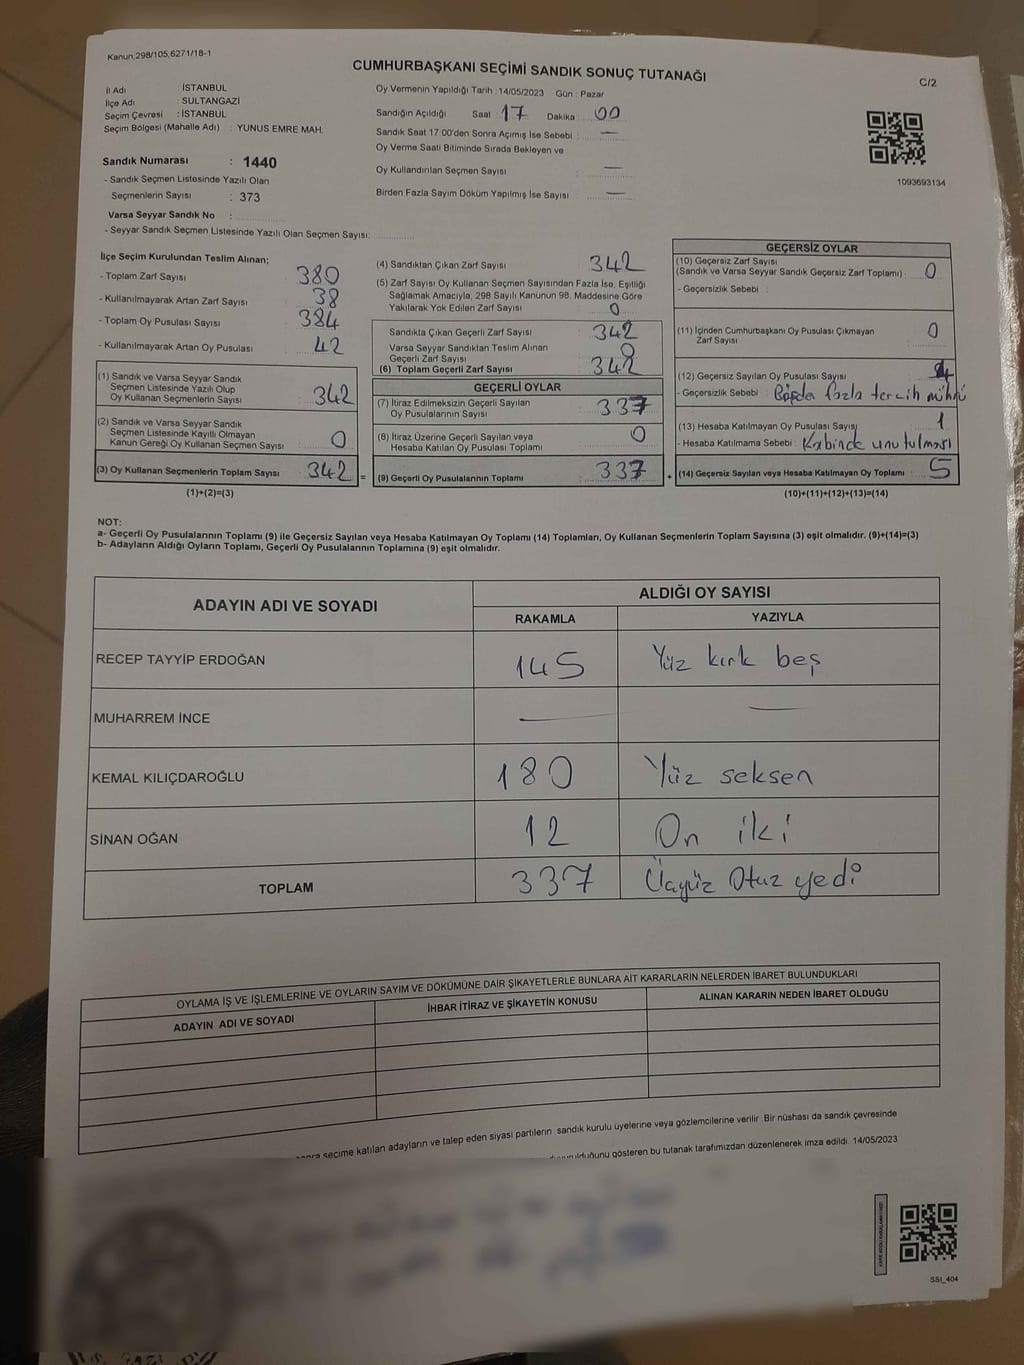 Kanun,298/105,6271/18-1
CUMHURBAŞKANI SEÇİMİ SANDIK SONUÇ TUTANAĞI
C/2
İl Adı : İSTANBUL
İlçe Adı : SULTANGAZİ
Seçim Çevresi : İSTANBUL
Seçim Bölgesi (Mahalle Adı) : YUNUS EMRE MAH.
Sandık Numarası : 1440
- Sandık Seçmen Listesinde Yazılı Olan
Seçmenlerin Sayısı : 373
Varsa Seyyar Sandık No :
- Seyyar Sandık Seçmen Listesinde Yazılı Olan Seçmen Sayısı:
Oy Vermenin Yapıldığı Tarih : 14/05/2023 Gün : Pazar
Sandığın Açıldığı Saat 17 Dakika 00
Sandık Saat 17:00'den Sonra Açımış İse Sebebi : —
Oy Verme Saati Bitiminde Sırada Bekleyen ve
Oy Kullandırılan Seçmen Sayısı : —
Birden Fazla Sayım Döküm Yapılmış İse Sayısı : —
1093693134
İlçe Seçim Kurulundan Teslim Alınan;
- Toplam Zarf Sayısı : 380
- Kullanılmayarak Artan Zarf Sayısı : 38
- Toplam Oy Pusulası Sayısı : 384
- Kullanılmayarak Artan Oy Pusulası : 42
(1) Sandık ve Varsa Seyyar Sandık
Seçmen Listesinde Yazılı Olup
Oy Kullanan Seçmenlerin Sayısı : 342
(2) Sandık ve Varsa Seyyar Sandık
Seçmen Listesinde Kayıtlı Olmayan
Kanun Gereği Oy Kullanan Seçmen Sayısı : 0
(3) Oy Kullanan Seçmenlerin Toplam Sayısı : 342
(1)+(2)=(3)
(4) Sandıktan Çıkan Zarf Sayısı : 342
(5) Zarf Sayısı Oy Kullanan Seçmen Sayısından Fazla İse, Eşitliği
Sağlamak Amacıyla; 298 Sayılı Kanunun 98. Maddesine Göre
Yakılarak Yok Edilen Zarf Sayısı : 0
Sandıkta Çıkan Geçerli Zarf Sayısı : 342
Varsa Seyyar Sandıktan Teslim Alınan
Geçerli Zarf Sayısı : 0
(6) Toplam Geçerli Zarf Sayısı : 342
GEÇERLİ OYLAR
(7) İtiraz Edilmeksizin Geçerli Sayılan
Oy Pusulalarının Sayısı : 337
(8) İtiraz Üzerine Geçerli Sayılan veya
Hesaba Katılan Oy Pusulası Toplamı : 0
= (9) Geçerli Oy Pusulalarının Toplamı : 337
GEÇERSİZ OYLAR
(10) Geçersiz Zarf Sayısı
(Sandık ve Varsa Seyyar Sandık Geçersiz Zarf Toplamı) : 0
- Geçersizlik Sebebi :
(11) İçinden Cumhurbaşkanı Oy Pusulası Çıkmayan
Zarf Sayısı : 0
(12) Geçersiz Sayılan Oy Pusulası Sayısı : 4
- Geçersizlik Sebebi : fazla tercih mührü
(13) Hesaba Katılmayan Oy Pusulası Sayısı : 1
- Hesaba Katılmama Sebebi : Kabinde unutulması
+ (14) Geçersiz Sayılan veya Hesaba Katılmayan Oy Toplamı : 5
(10)+(11)+(12)+(13)=(14)
NOT:
a- Geçerli Oy Pusulalarının Toplamı (9) ile Geçersiz Sayılan veya Hesaba Katılmayan Oy Toplamı (14) Toplamları, Oy Kullanan Seçmenlerin Toplam Sayısına (3) eşit olmalıdır. (9)+(14)=(3)
b- Adayların Aldığı Oyların Toplamı, Geçerli Oy Pusulalarının Toplamına (9) eşit olmalıdır.
ADAYIN ADI VE SOYADI
ALDIĞI OY SAYISI
RAKAMLA YAZIYLA
RECEP TAYYİP ERDOĞAN 145 Yüz kırk beş
MUHARREM İNCE — —
KEMAL KILIÇDAROĞLU 180 Yüz seksen
SİNAN OĞAN 12 On iki
TOPLAM 337 Üçyüz Otuz yedi
OYLAMA İŞ VE İŞLEMLERİNE VE OYLARIN SAYIM VE DÖKÜMÜNE DAİR ŞİKAYETLERLE BUNLARA AİT KARARLARIN NELERDEN İBARET BULUNDUKLARI
ADAYIN ADI VE SOYADI İHBAR İTİRAZ VE ŞİKAYETİN KONUSU ALINAN KARARIN NEDEN İBARET OLDUĞU
seçime katılan adayların ve talep eden siyasi partilerin sandık kurulu üyelerine veya gözlemcilerine verilir. Bir nüshası da sandık çevresinde
gösteren bu tutanak tarafımızdan düzenlenerek imza edildi. 14/05/2023
SSI_404